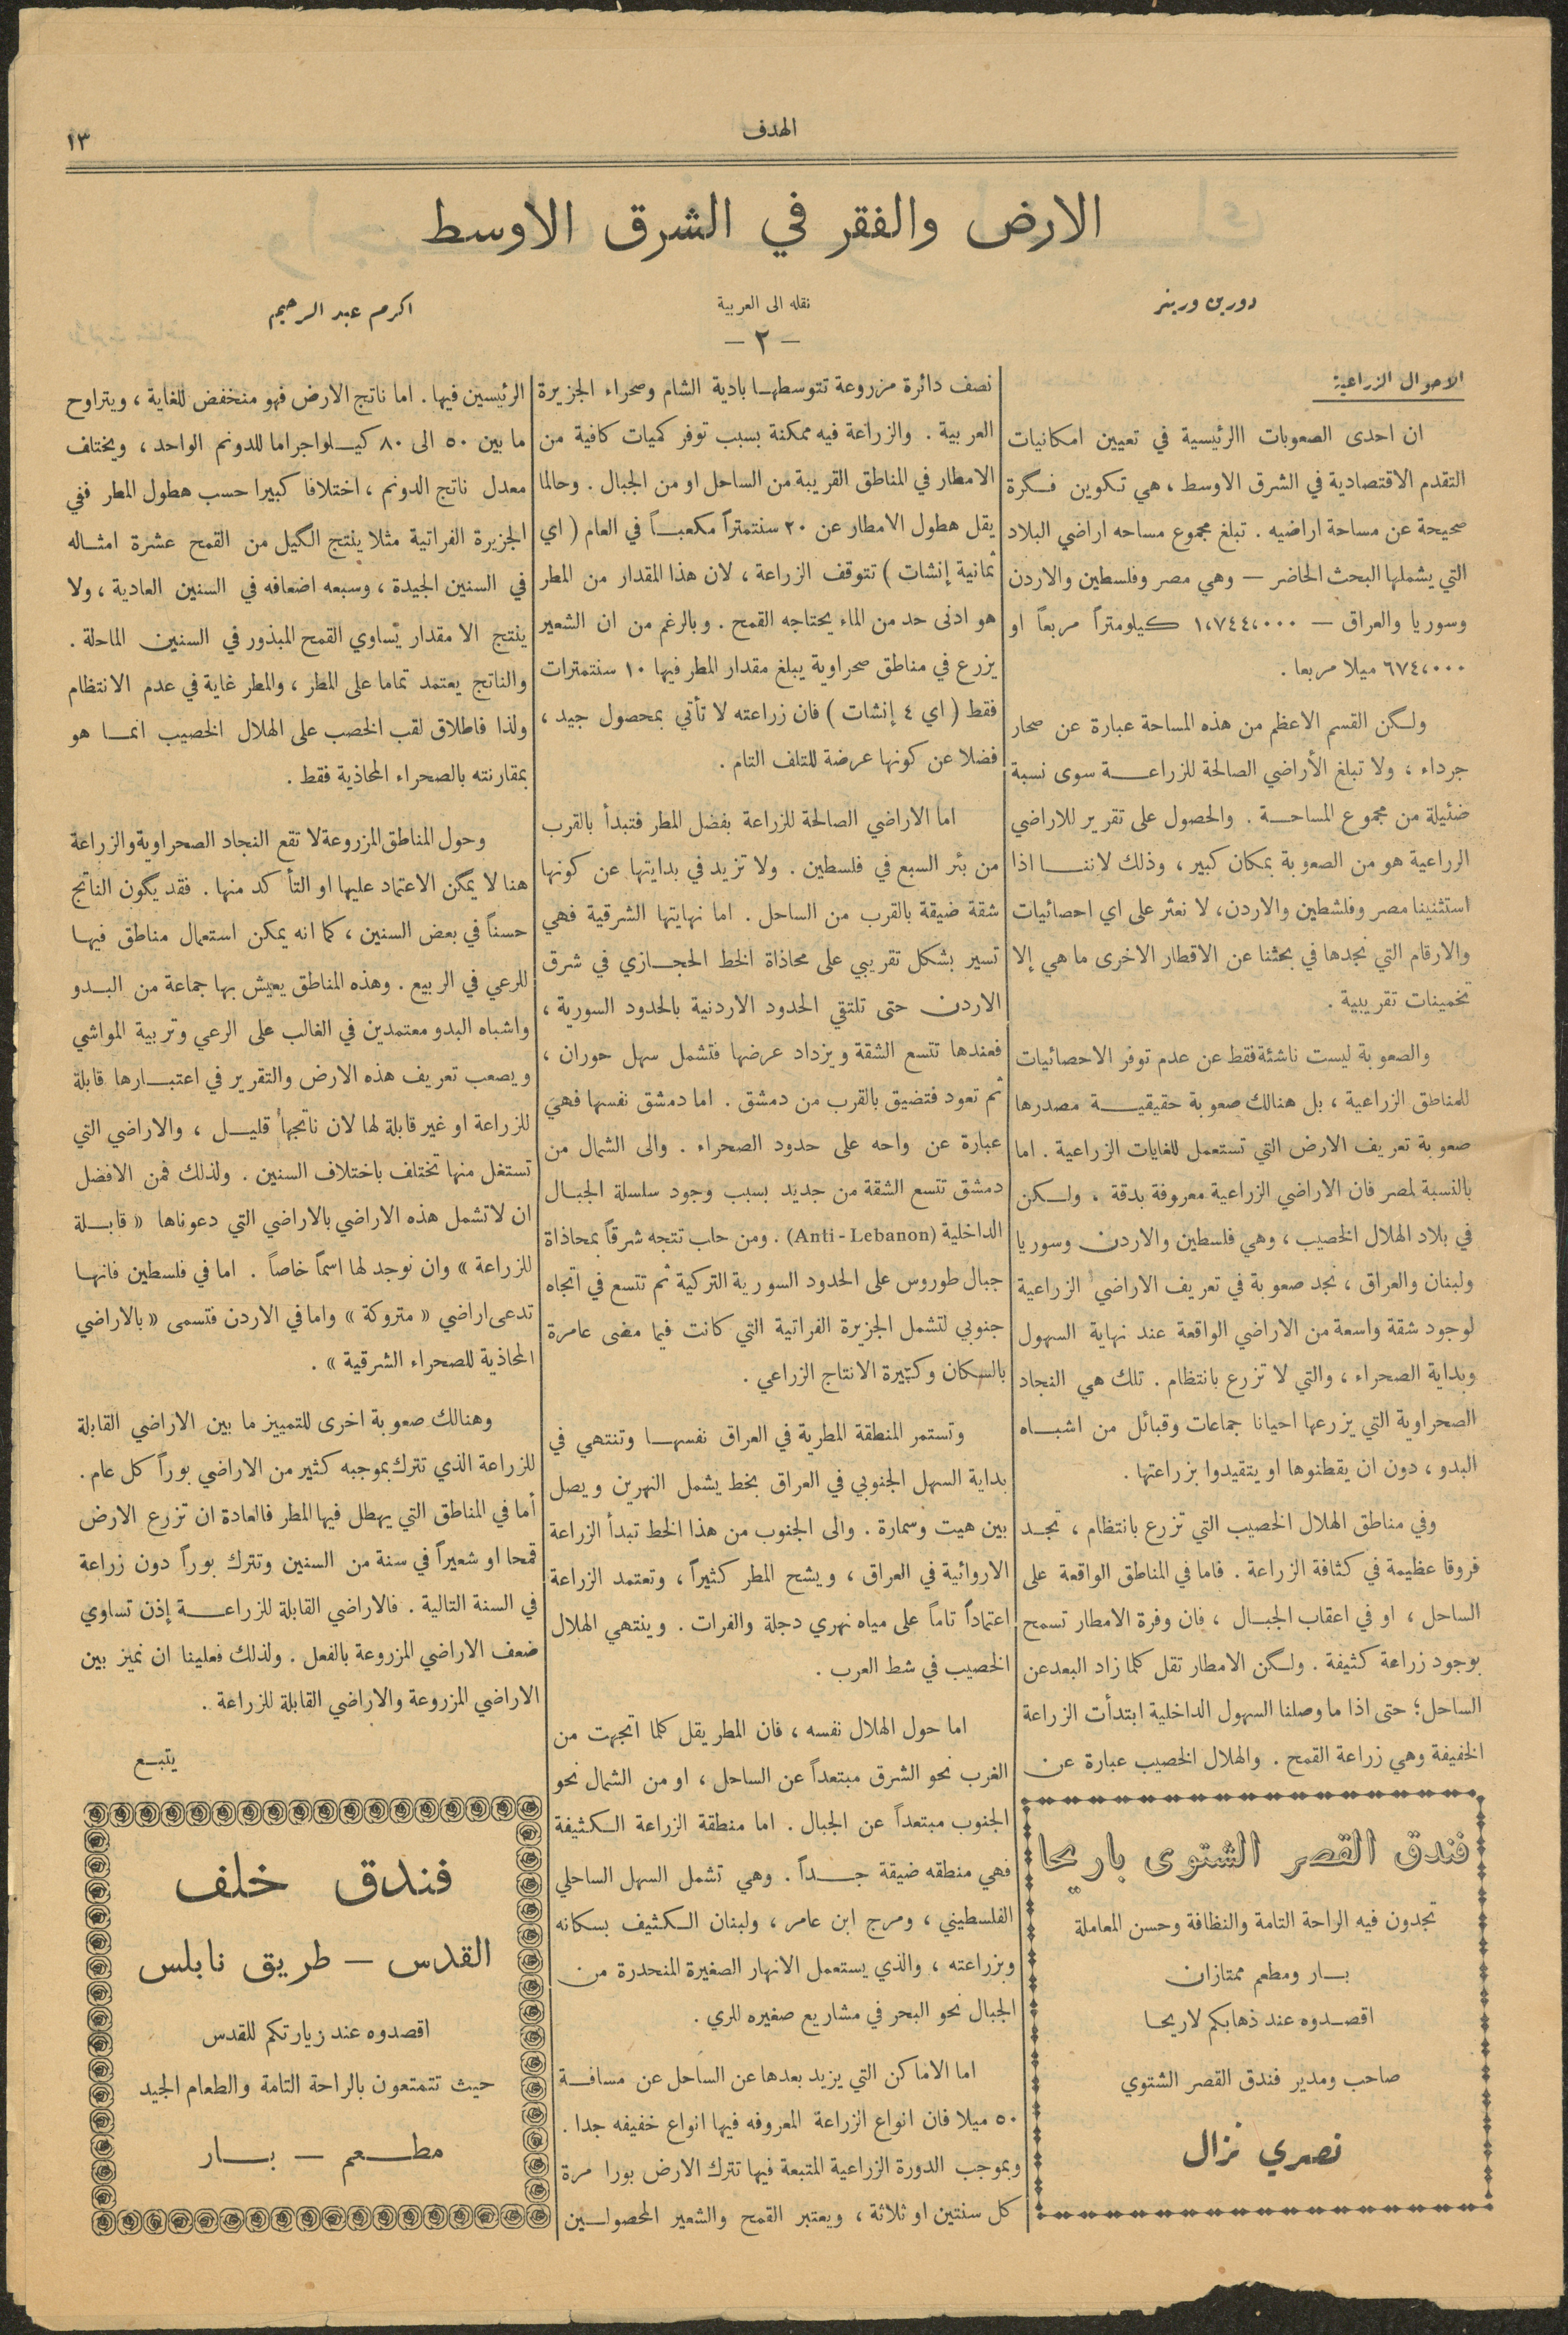 الهدف
١٣
الارض والفقر في الشرق الاوسط
دورين ورينر
نقله الى العربية
اكرم عبد الرحيم
— ٢ —
الاحوال الزراعية
ان احدى الصعوبات االرئيسية في تعيين امكانيات
التقدم الاقتصادية في الشرق الاوسط ، هي تكوين فكرة
صحيحة عن مساحة اراضيه . تبلغ مجموع مساحه اراضي البلاد
التي يشملها البحث الحاضر — وهي مصر وفلسطين والاردن
وسوريا والعراق — ١،٧٤٤،٠٠٠ كيلومتراً مربعاً او
٦٧٤،٠٠٠ ميلا مربعا .
ولكن القسم الاعظم من هذه المساحة عبارة عن صحار
جرداء ، ولا تبلغ الأراضي الصالحة للزراعة سوى نسبة
ضئيلة من مجموع المساحة . والحصول على تقرير للاراضي
الزراعية هو من الصعوبة بمكان كبير ، وذلك لاننا اذا
استثنينا مصر وفلشطين والاردن، لا نعثر على اي احصائيات
والارقام التي نجدها في بحثنا عن الاقطار الاخرى ما هي إلا
تخمينات تقريبية .
والصعوبة ليست ناشئة فقط عن عدم توفر الاحصائيات
للمناطق الزراعية ، بل هنالك صعوبة حقيقية مصدرها
صعوبة تعريف الارض التي تستعمل للغايات الزراعية . اما
بالنسبة لمصر فان الاراضي الزراعية معروفة بدقة ، ولكن
في بلاد الهلال الخصيب ، وهي فلسطين والاردن وسوريا
ولبنان والعراق ، نجد صعوبة في تعريف الاراضي الزراعية
لوجود شقة واسعة من الاراضي الواقعة عند نهاية السهول
وبداية الصحراء ، والتي لا تزرع بانتظام . تلك هي النجاد
الصحراوية التي يزرعها احيانا جماعات وقبائل من اشباه
البدو ، دون ان يقطنوها او يتقيدوا بزراعتها .
وفي مناطق الهلال الخصيب التي تزرع بانتظام ، تجد
فروقا عظيمة في كثافة الزراعة . فاما في المناطق الواقعة على
الساحل ، او في اعقاب الجبال ، فان وفرة الامطار تسمح
بوجود زراعة كثيفة . ولكن الامطار تقل كلما زاد البعد عن
الساحل؛ حتى اذا ما وصلنا السهول الداخلية ابتدأت الزراعة
الخفيفة وهي زراعة القمح . والهلال الخصيب عبارة عن
نصف دائرة مزروعة تتوسطها بادية الشام وصحراء الجزيرة
العربية . والزراعة فيه ممكنة بسبب توفر كميات كافية من
الامطار في المناطق القريبة من الساحل او من الجبال . وحالما
يقل هطول الامطار عن ٢٠ سنتمتراً مكعباً في العام ( اي
ثمانية إنشات ) تتوقف الزراعة ، لان هذا المقدار من المطر
هو ادنى حد من الماء يحتاجه القمح . وبالرغم من ان الشعير
يزرع في مناطق صحراوية يبلغ مقدار المطر فيها ١٠ سنتمترات
فقط ( اي ٤ إنشات ) فان زراعته لا تأتي بمحصول جيد ،
فضلا عن كونها عرضة للتلف التام .
اما الاراضي الصالحة للزراعة بفضل المطر فتبدأ بالقرب
من بئر السبع في فلسطين . ولا تزيد في بدايتها عن كونها
شقة ضيقة بالقرب من الساحل . اما نهايتها الشرقية فهي
تسير بشكل تقريبي على محاذاة الخط الحجازي في شرق
الاردن حتى تلتقي الحدود الاردنية بالحدود السورية ،
فعندها تتسع الشقة ويزداد عرضها فتشمل سهل حوران ،
ثم تعود فتضيق بالقرب من دمشق . اما دمشق نفسها فهي
عبارة عن واحه على حدود الصحراء . والى الشمال من
دمشق تتسع الشقة من جديد بسبب وجود سلسلة الجبال
الداخلية (Anti - Lebanon) . ومن حلب تتجه شرقاً بمحاذاة
جبال طوروس على الحدود السورية التركية ثم تتسع في اتجاه
جنوبي لتشمل الجزيرة الفراتية التي كانت فيما مضى عامرة
بالسكان وكثيرة الانتاج الزراعي .
وتستمر المنطقة المطرية في العراق نفسها وتنتهي في
بداية السهل الجنوبي في العراق بخط يشمل النهرين ويصل
بين هيت وسمارة . والى الجنوب من هذا الخط تبدأ الزراعة
الاروائية في العراق ، ويشح المطر كثيراً ، وتعتمد الزراعة
اعتماداً تاماً على مياه نهري دجلة والفرات . وينتهي الهلال
الخصيب في شط العرب .
اما حول الهلال نفسه ، فان المطر يقل كلما اتجهت من
الغرب نحو الشرق مبتعداً عن الساحل ، او من الشمال نحو
الجنوب مبتعداً عن الجبال . اما منطقة الزراعة الكثيفة
فهي منطقه ضيقة جداً . وهي تشمل السهل الساحلي
الفلسطيني ، ومرج ابن عامر ، ولبنان الكثيف بسكانه
وبزراعته ، والذي يستعمل الانهار الصغيرة المنحدرة من
الجبال نحو البحر في مشاريع صغيره للري .
اما الاماكن التي يزيد بعدها عن الساحل عن مسافة
٥٠ ميلا فان انواع الزراعة المعروفه فيها انواع خفيفه جدا .
وبموجب الدورة الزراعية المتبعة فيها تترك الارض بورا مرة
كل سنتين او ثلاثة ، ويعتبر القمح والشعير المحصولين
الرئيسين فيها . اما ناتج الارض فهو منخفض للغاية ، ويتراوح
ما بين ٥٠ الى ٨٠ كيلواجراما للدونم الواحد ، ويختلف
معدل ناتج الدونم ، اختلافا كبيرا حسب هطول المطر ففي
الجزيرة الفراتية مثلا ينتج الكيل من القمح عشرة امثاله
في السنين الجيدة ، وسبعه اضعافه في السنين العادية ، ولا
ينتج الا مقدار يساوي القمح المبذور في السنين الماحلة .
والناتج يعتمد تماما على المطر ، والمطر غاية في عدم الانتظام
ولذا فاطلاق لقب الخصب على الهلال الخصيب انما هو
بمقارنته بالصحراء المحاذية فقط .
وحول المناطق المزروعة لا تقع النجاد الصحراوية والزراعة
هنا لا يمكن الاعتماد عليها او التأكد منها . فقد يكون الناتج
حسناً في بعض السنين ، كما انه يمكن استعمال مناطق فيها
للرعي في الربيع . وهذه المناطق يعيش بها جماعة من البدو
واشباه البدو معتمدين في الغالب على الرعي وتربية المواشي
ويصعب تعريف هذه الارض والتقرير في اعتبارها قابلة
للزراعة او غير قابلة لها لان ناتجها قليل ، والاراضي التي
تستغل منها تختلف باختلاف السنين . ولذلك فمن الافضل
ان لا تشمل هذه الاراضي بالاراضي التي دعوناها « قابلة
للزراعة » وان نوجد لها اسماً خاصاً . اما في فلسطين فانها
تدعى اراضي « متروكة » واما في الاردن فتسمى « بالاراضي
المحاذية للصحراء الشرقية » .
وهنالك صعوبة اخرى للتمييز ما بين الاراضي القابلة
للزراعة الذي تترك بموجبه كثير من الاراضي بوراً كل عام .
أما في المناطق التي يهطل فيها المطر فالعادة ان تزرع الارض
قمحا او شعيراً في سنة من السنين وتترك بوراً دون زراعة
في السنة التالية . فالاراضي القابلة للزراعة إذن تساوي
ضعف الاراضي المزروعة بالفعل . ولذلك فعلينا ان نميز بين
الاراضي المزروعة والاراضي القابلة للزراعة .
يتبع
فندق القصر الشتوى باريحا
تجدون فيه الراحة التامة والنظافة وحسن المعاملة
بار ومطعم ممتازان
اقصدوه عند ذهابكم لاريحا
صاحب ومدير فندق القصر الشتوي
نصري نزال
فندق خلف
القدس — طريق نابلس
اقصدوه عند زيارتكم للقدس
حيث تتمتعون بالراحة التامة والطعام الجيد
مطعم — بار